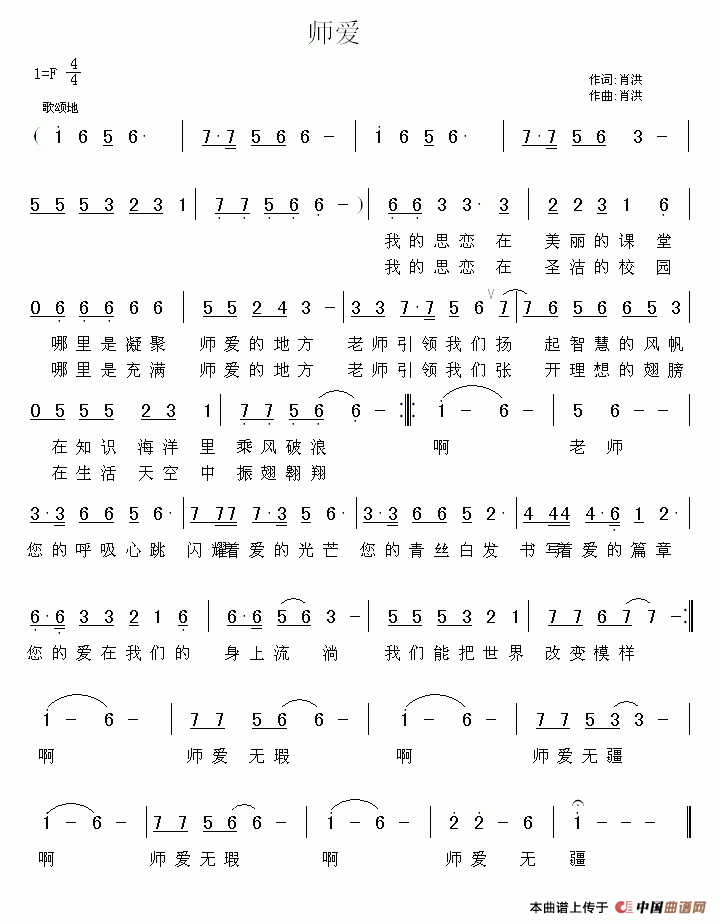 师爱
1=F 4/4
作词:肖洪
歌颂地
作曲:肖洪
( 1 6 5 6· | 7·7 5 6 6 − | 1 6 5 6· | 7·7 5 6 3 − |
5 5 5 3 2 3 1 | 7 7 5 6 6 − ) | 6 6 3 3· 3 | 2 2 3 1 6 |
我的思恋在 美丽的课堂
我的思恋在 圣洁的校园
0 6 6 6 6 6 | 5 5 2 4 3 − | 3 3 7·7 5 6 7 | 7 6 5 6 6 5 3 |
哪里是凝聚 师爱的地方 老师引领我们扬 起智慧的风帆
哪里是充满 师爱的地方 老师引领我们张 开理想的翅膀
0 5 5 5 2 3 1 | 7 7 5 6 6 − :||: 1 − 6 − | 5 6 − − |
在知识 海洋 里 乘风破浪 啊 老师
在生活 天空 中 振翅翱翔
3·3 6 6 5 6· | 7 7 7 7·3 5 6· | 3·3 6 6 5 2· | 4 4 4 4·6 1 2· |
您的呼吸心跳 闪耀着爱的光芒 您的青丝白发 书写着爱的篇章
6·6 3 3 2 1 6 | 6·6 5 6 3 − | 5 5 5 3 2 1 | 7 7 6 7 7 − :||
您的爱在我们的 身上流 淌 我们能把世界 改变模样
1 − 6 − | 7 7 5 6 6 − | 1 − 6 − | 7 7 5 3 3 − |
啊 师爱无瑕 啊 师爱无疆
1 − 6 − | 7 7 5 6 6 − | 1 − 6 − | 2 2 − 6 − | 1 − − − ||
啊 师爱无瑕 啊 师爱 无 疆
本曲谱上传于 中国曲谱网